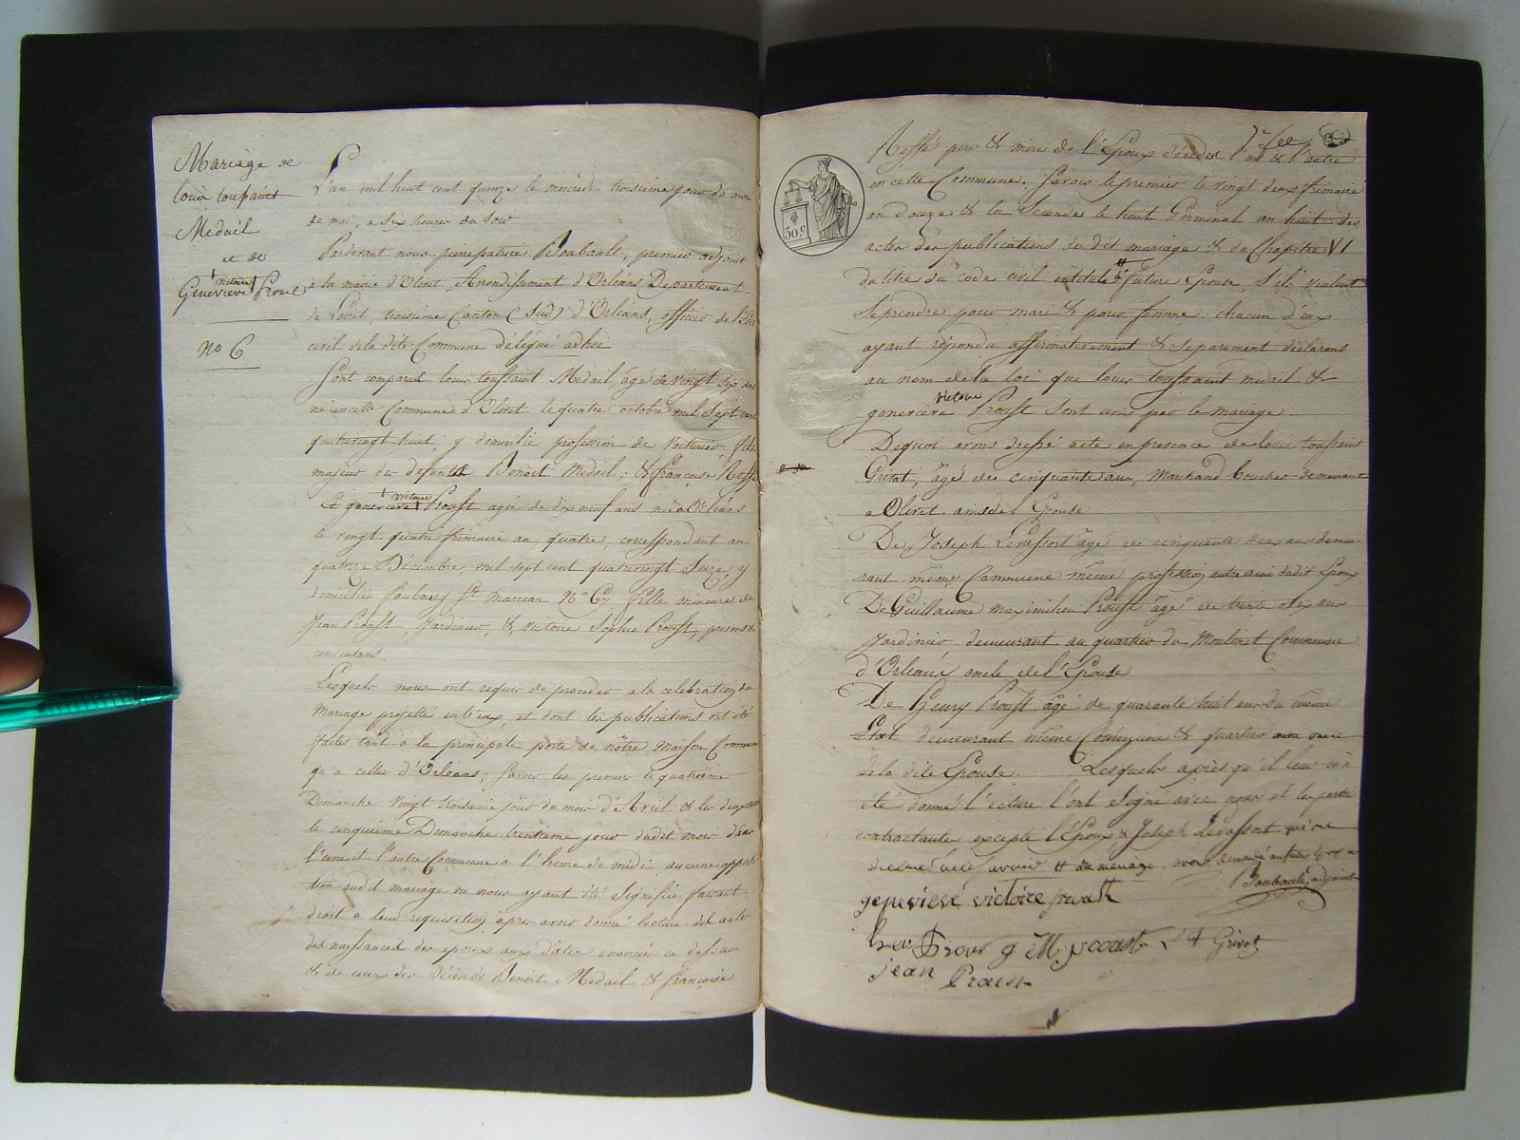 Mariage de
louis toussaint
Medail
et de
victoire
Genevieve Proust
No 6
L'an mil huit cent quinze le mercredi troisieme jour du mois
de mai, a six heures du soir
Pardevant nous Boubault, premier adjoint
a la mairie d'Olivet, Arrondissement d'Orléans Departement
du Loiret, troisieme Canton (Sud) d'Orléans, officier de l'Etat
civil de la dite Commune délégué ad hoc
Sont comparus louis toussaint Medail, âgé de vingt six ans
né en cette Commune d'Olivet le quatre octobre mil sept cent
quatrevingt huit, y domicilié profession de fils
majeur des defunts Benoit Medail, & françoise Rossé
victoire
Et genevieve Proust agée de dix neuf ans née a Orléans
le vingt quatre frimaire an quatre, correspondant au
quatorze Décembre mil sept cent quatrevingt y
domiciliée faubourg St marceau No 67 fille mineure de
Jean Proust, Jardinier, & victoire Sophie Proust, presents
consentans
Lesquels nous ont requis de proceder a la celebration du
mariage projetté entr'eux, et dont les publications ont été
faites tant a la principale porte de nôtre maison Commune
qu'a celles d'Orléans; savoir les premier le quatrieme
Dimanche vingt troisieme jour du mois d'Avril & les
le cinquieme Dimanche trentieme jour dudit mois dans
l'une et l'autre Commune a l'heure de midi aucune opposi
tion audit mariage ne nous ayant été signifiée faisant
droit a leur requisition, apres avoir donné lecture des actes
des naissances des epoux aux dates enoncées ci dessus
& de ceux des décès de Benoit Medail & françoise
Rossé pere & mere de l'Epoux décédés l'un & l'autre
en cette Commune. savoir le premier le vingt deux frimaire
an douze & la seconde le huit Germinal an huit des
actes des publications du dit mariage & du Chapitre VI
du titre du code civil intitulé future Epouse, s'ils veulent
se prendre pour mari & pour femme chacun d'eux
ayant répondu affirmativement & separement declarons
au nom de la loi que louis toussaint medail &
victoire
genevieve Proust sont unis par le mariage
Dequoi avons dressé acte en presence de louis toussaint
Grivot, âgé de cinquante ans, Marchand boucher demeurant
a Olivet, ami de l'Epouse
De Joseph Levassort âgé de cinquante deux ans demeu
rant même Commune même profession, ami dudit Epoux
De Guillaume maximilien Proust âgé de trente deux ans
Jardinier demeurant au quartier du Moulinet Commune
d'Orléans oncle de l'Epouse
De Henry Proust âgé de quarante huit ans du même
Etat demeurant même Commune & quartier oncle
de la dite Epouse. Lesquels après qu'il leur en a
été donné lecture l'ont signé avec nous et les parties
contractantes excepté l'Epoux & Joseph Levassort qui ne
declaré savoir de mariage
Boubault, adjoint
genevieve victoire proust
g M proust L T Grivot
jean Proust
30 c